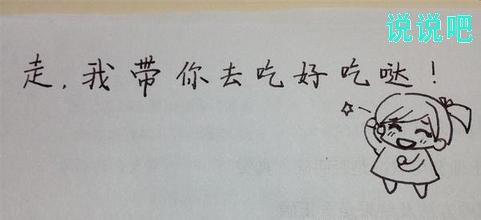 说说吧
走，我带你去吃好吃哒！